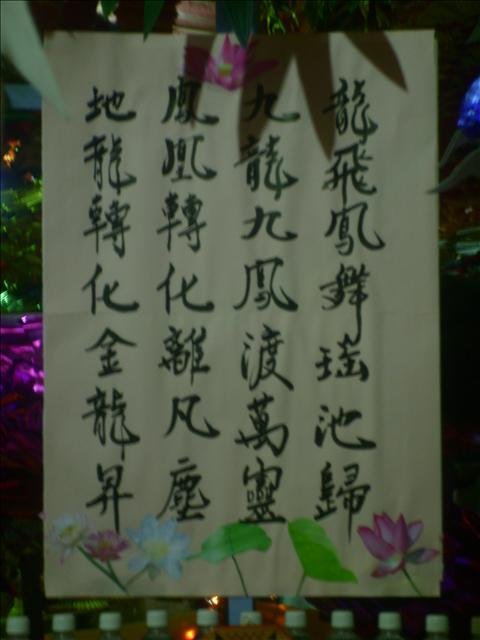 龍飛鳳舞瑤池歸
九龍九鳳渡萬靈
鳳凰轉化離凡塵
地龍轉化金龍昇